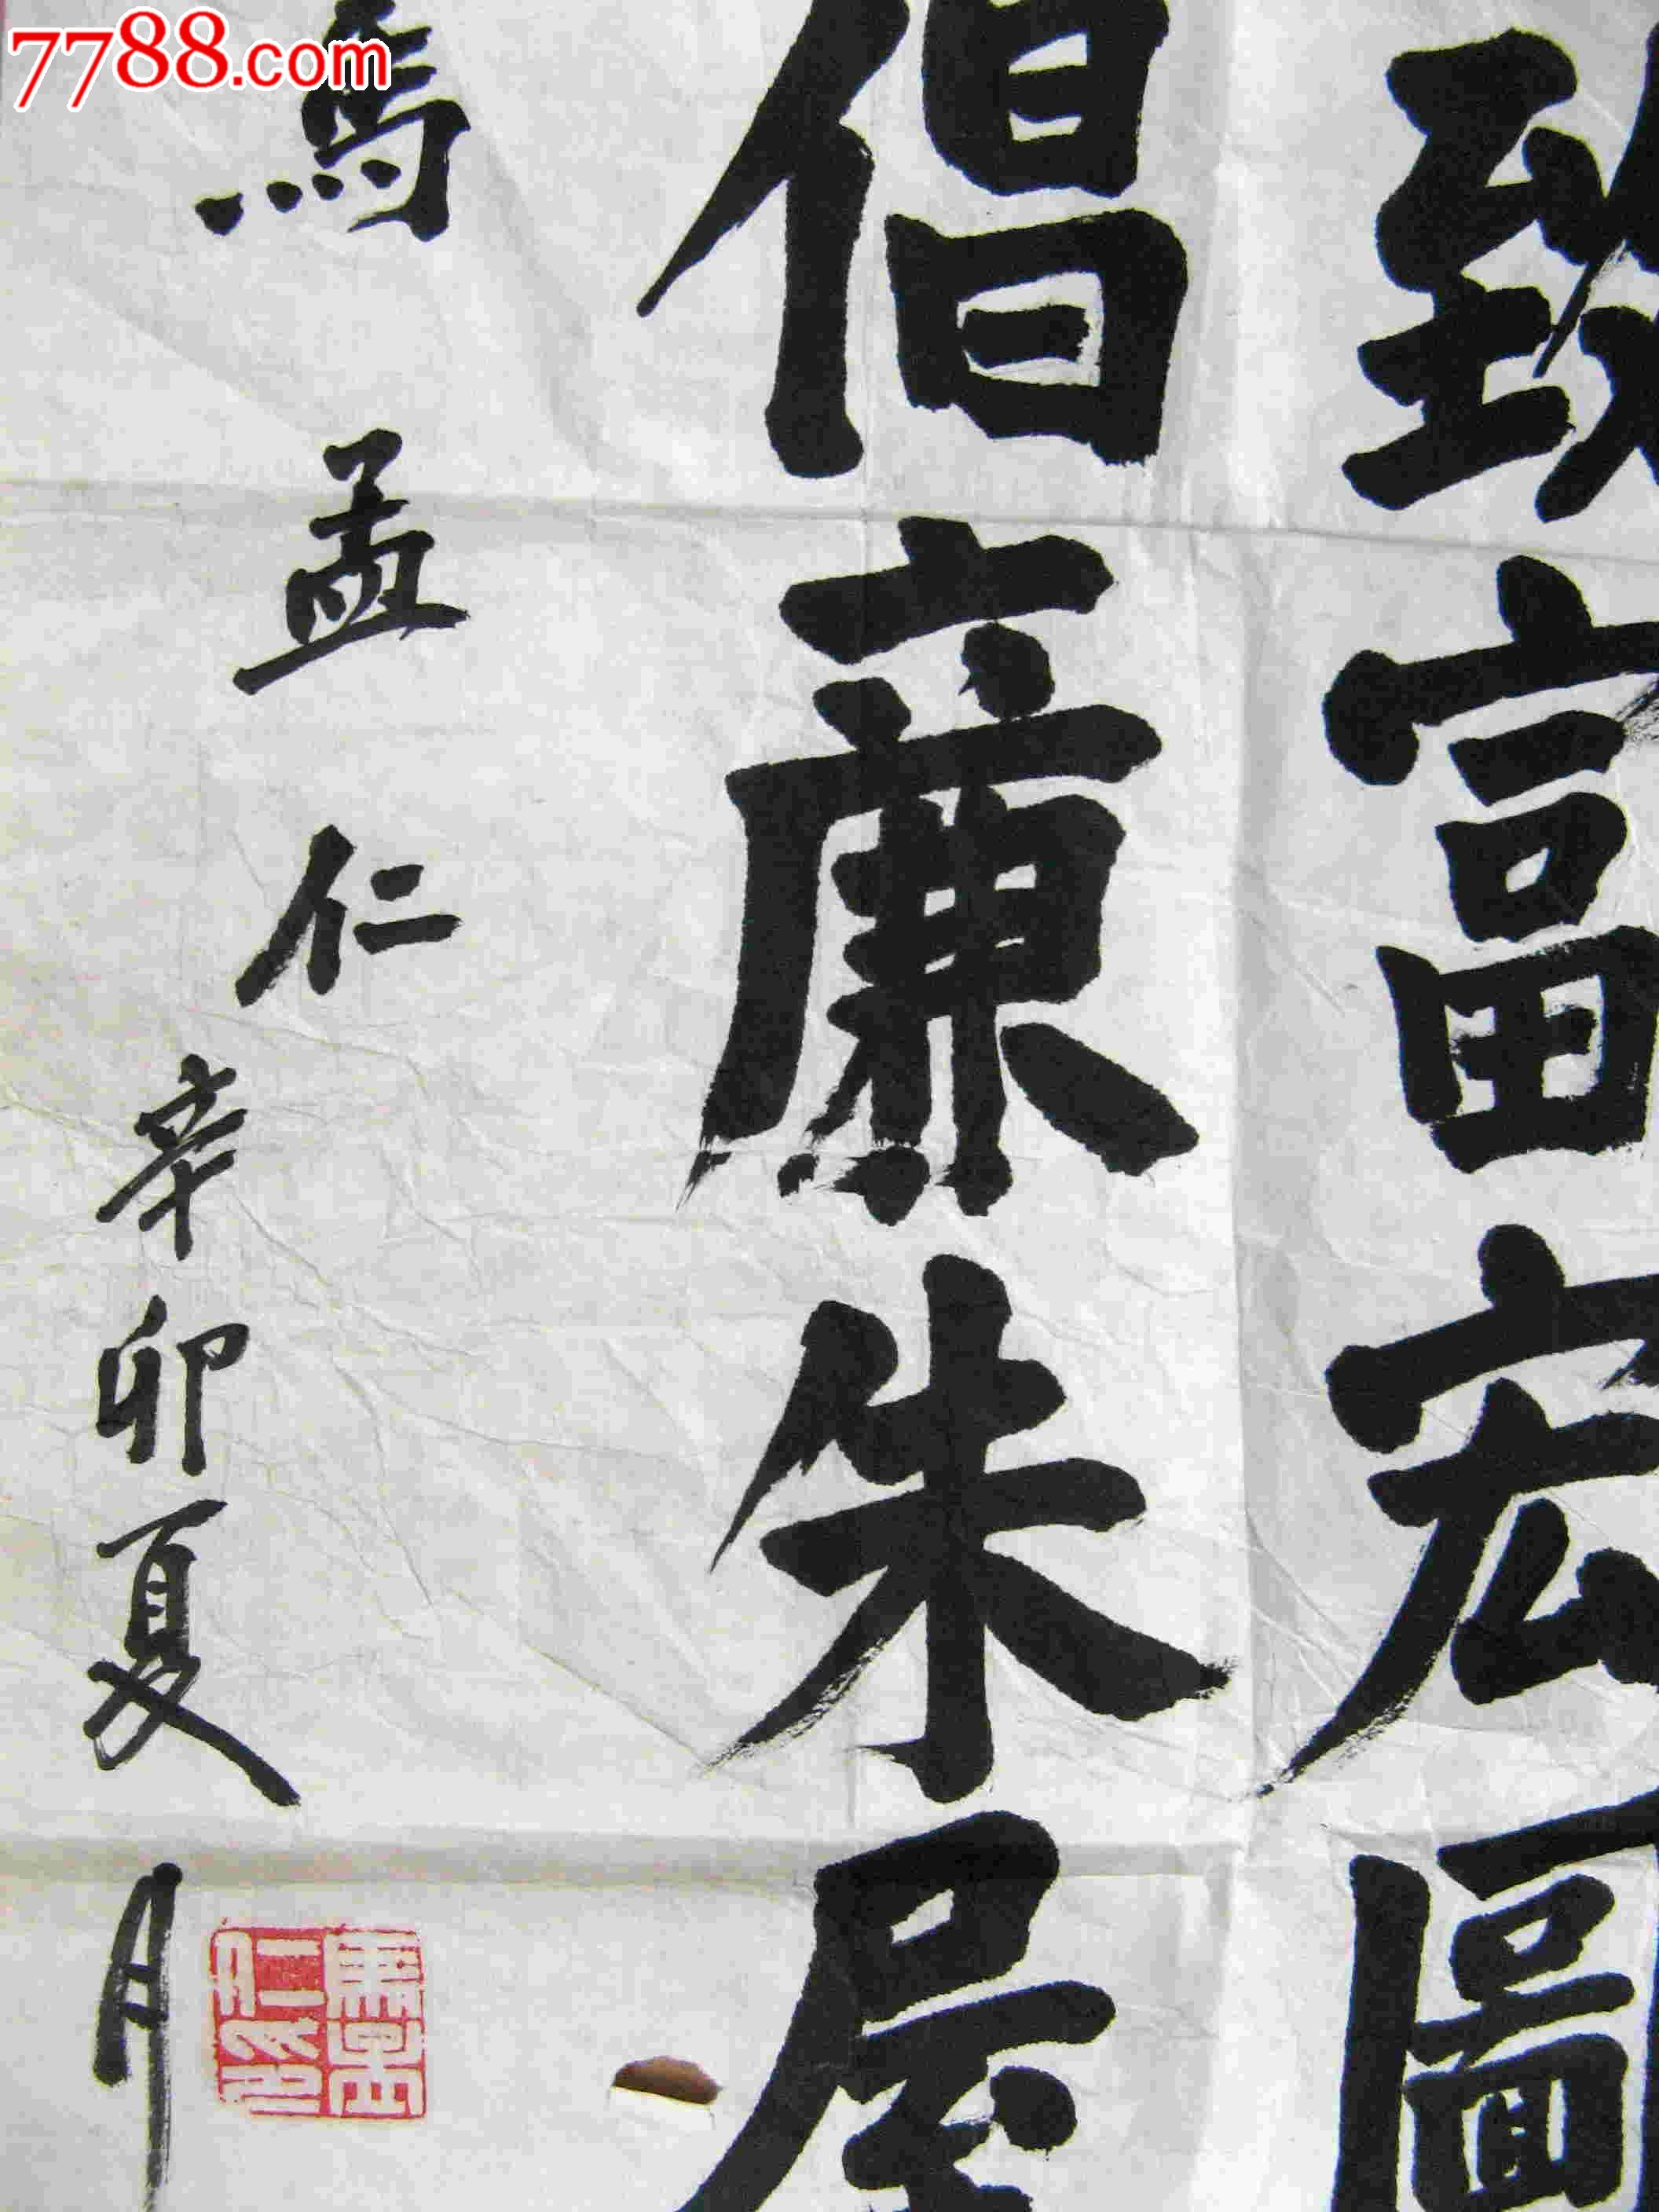 7788.com
致富宏圖
倡廉朱屋
馬孟仁
辛卯夏月
馬孟仁印